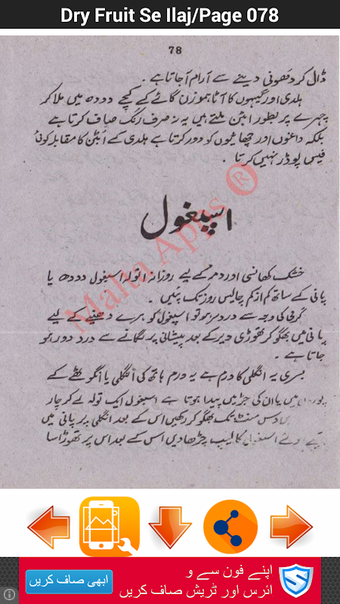 Dry Fruit Se Ilaj/Page 078
78
ڈال کر دھونی دینے سے آرام آجاتا ہے۔
ہلدی اور گیہوں کا آٹا ہموزن گائے کے کچے دودھ میں ملا کر
چہرے پر بطور ابٹن ملتے ہیں یہ نہ صرف رنگ صاف کرتا ہے
بلکہ داغوں اور چھائیوں کو دور کرتا ہے ہلدی کے ابٹن کا مقابلہ کوئی
فیس پوڈر نہیں کرتا۔
اسپغول
Malta Apps ®
خشک کھانسی اور دمہ کے لیے روزانہ اتولہ اسپغول دودھ یا
پانی کے ساتھ کم از کم چالیس روز تک پئیں۔
گرمی کی وجہ سے درد سر ہو تو اسپغول کو ہرے دھنیے کے
پانی میں بھگو کر تھوڑی دیر کے بعد پیشانی پر لگانے سے درد دور ہو
جاتا ہے۔
بسری یہ انگلی کا ورم ہے یہ ورم ہاتھ کی انگلی یا انگوٹھے کے
میں یا ان کی جڑ میں پیدا ہوتا ہے اسپغول ایک تولہ لے کر چار
دس منٹ تک بھگو کر رکھیں اس کے بعد انگلی پر پانی میں
اسپغول کا لیپ چڑھا دیں اس کے بعد اس پر تھوڑا سا
اپنے فون سے و
ائرس اور ٹریش صاف کریں
ابھی صاف کریں